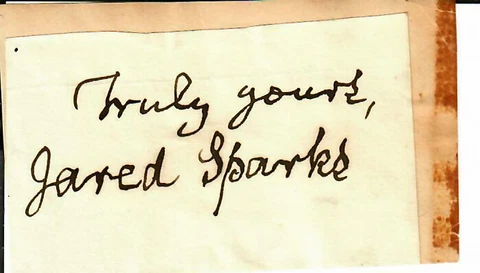 Truly yours,
Jared Sparks